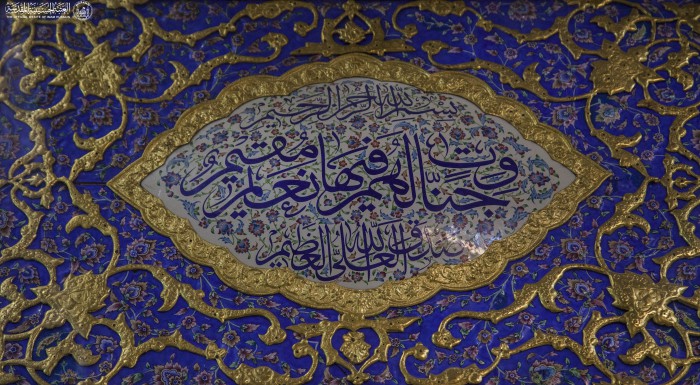 العتبة الحسينية المقدسة
THE OFFICIAL WEBSITE OF IMAM HUSSAIN
بسم الله الرحمن الرحيم
وجنات لهم فيها نعيم مقيم
صدق الله العلي العظيم